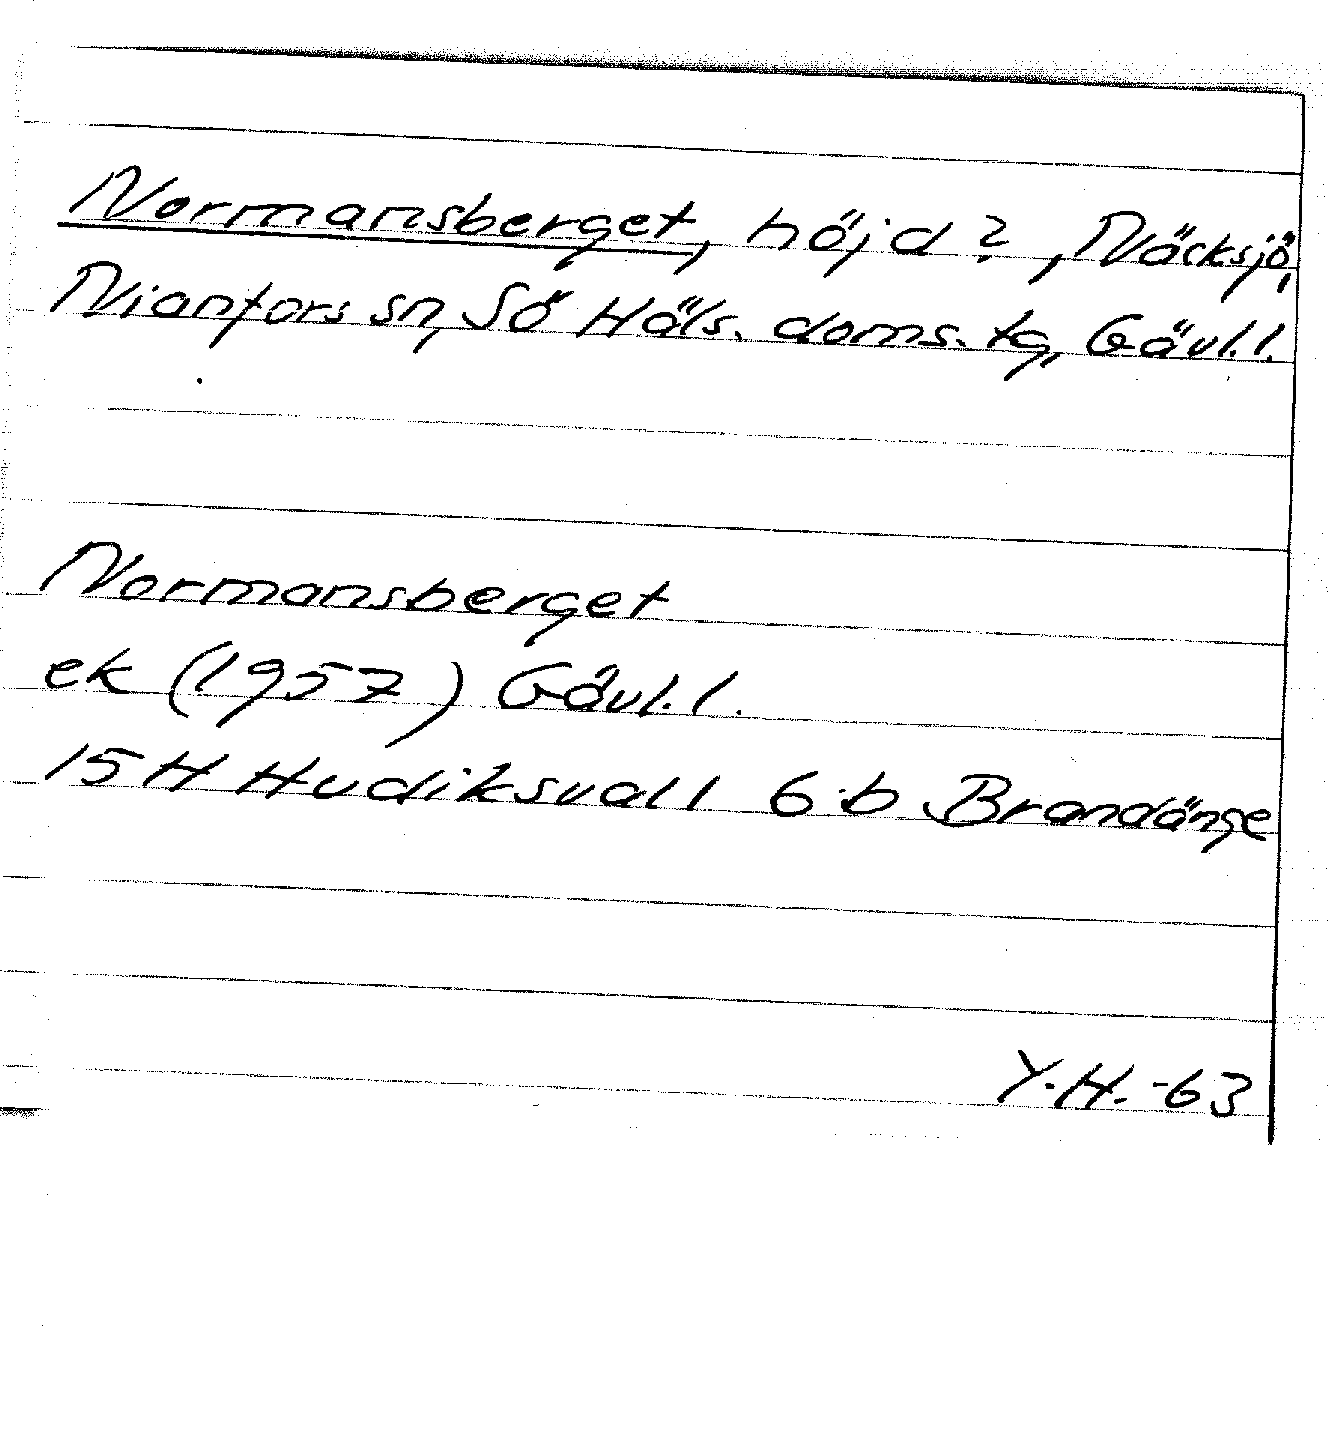 Normansberget, höjd?, Näcksjö,
Nianfors sn, Sö Häls. doms. tg, Gävl. l.
Normansberget
ek (1957) Gävl. l.
15 H Hudiksvall 6 b Brandänge
Y.H. -63